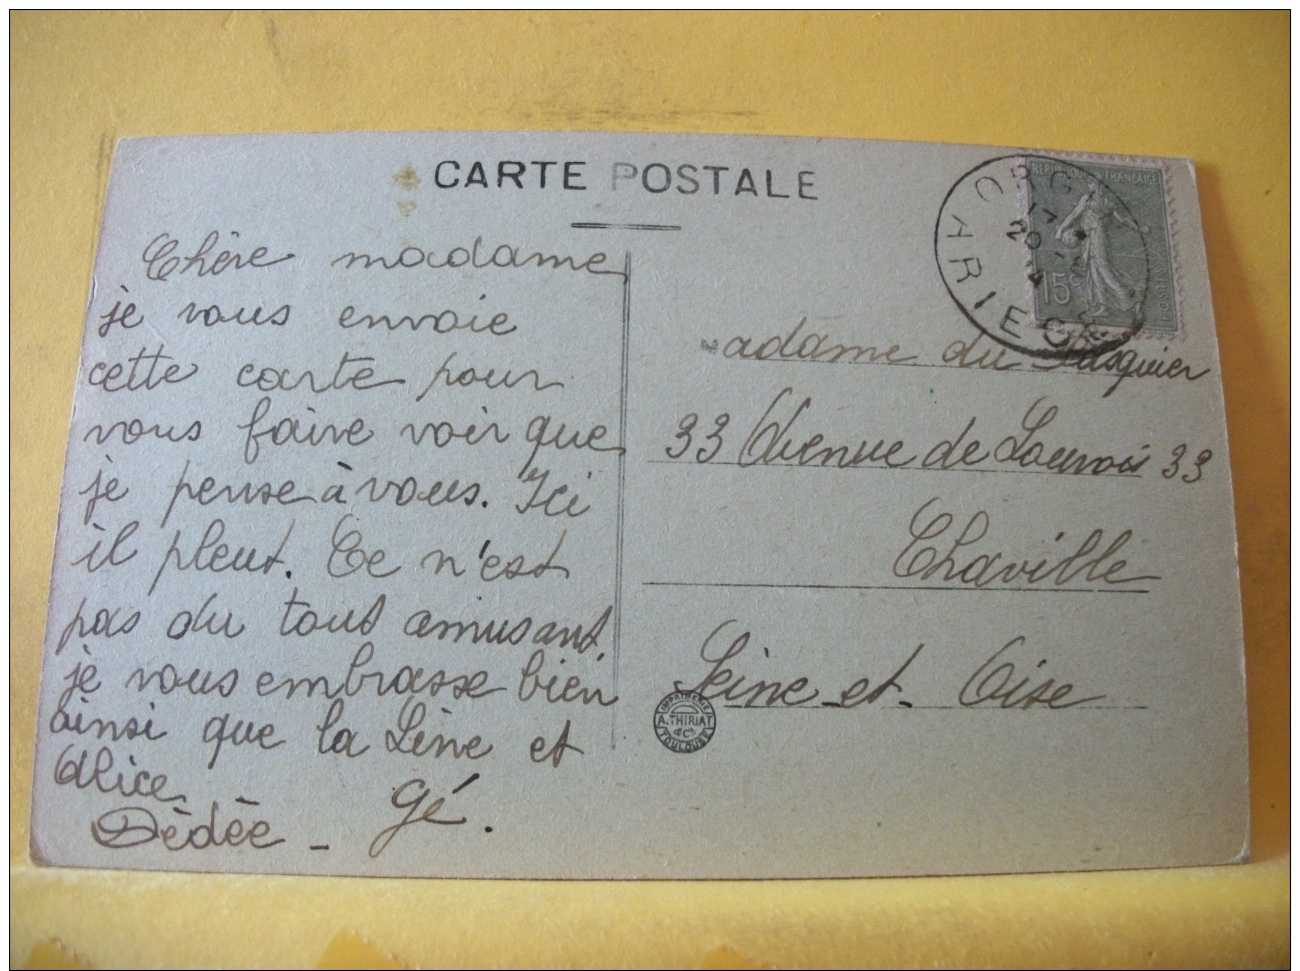 CARTE POSTALE
Chère madame
je vous envoie
cette carte pour
vous faire voir que
je pense à vous. Ici
il pleut. Ce n'est
pas du tout amusant
je vous embrasse bien
ainsi que la Line et
Alice.
Dédée - Gé.
ORG
ARIEGE
RÉPUBLIQUE FRANÇAISE
15c
adame du Pasquier
33 Avenue de Louvois 33
Chaville
Seine-et-Oise
IMPRIMERIE
A. THIRIAT
& Cie
TOULOUSE